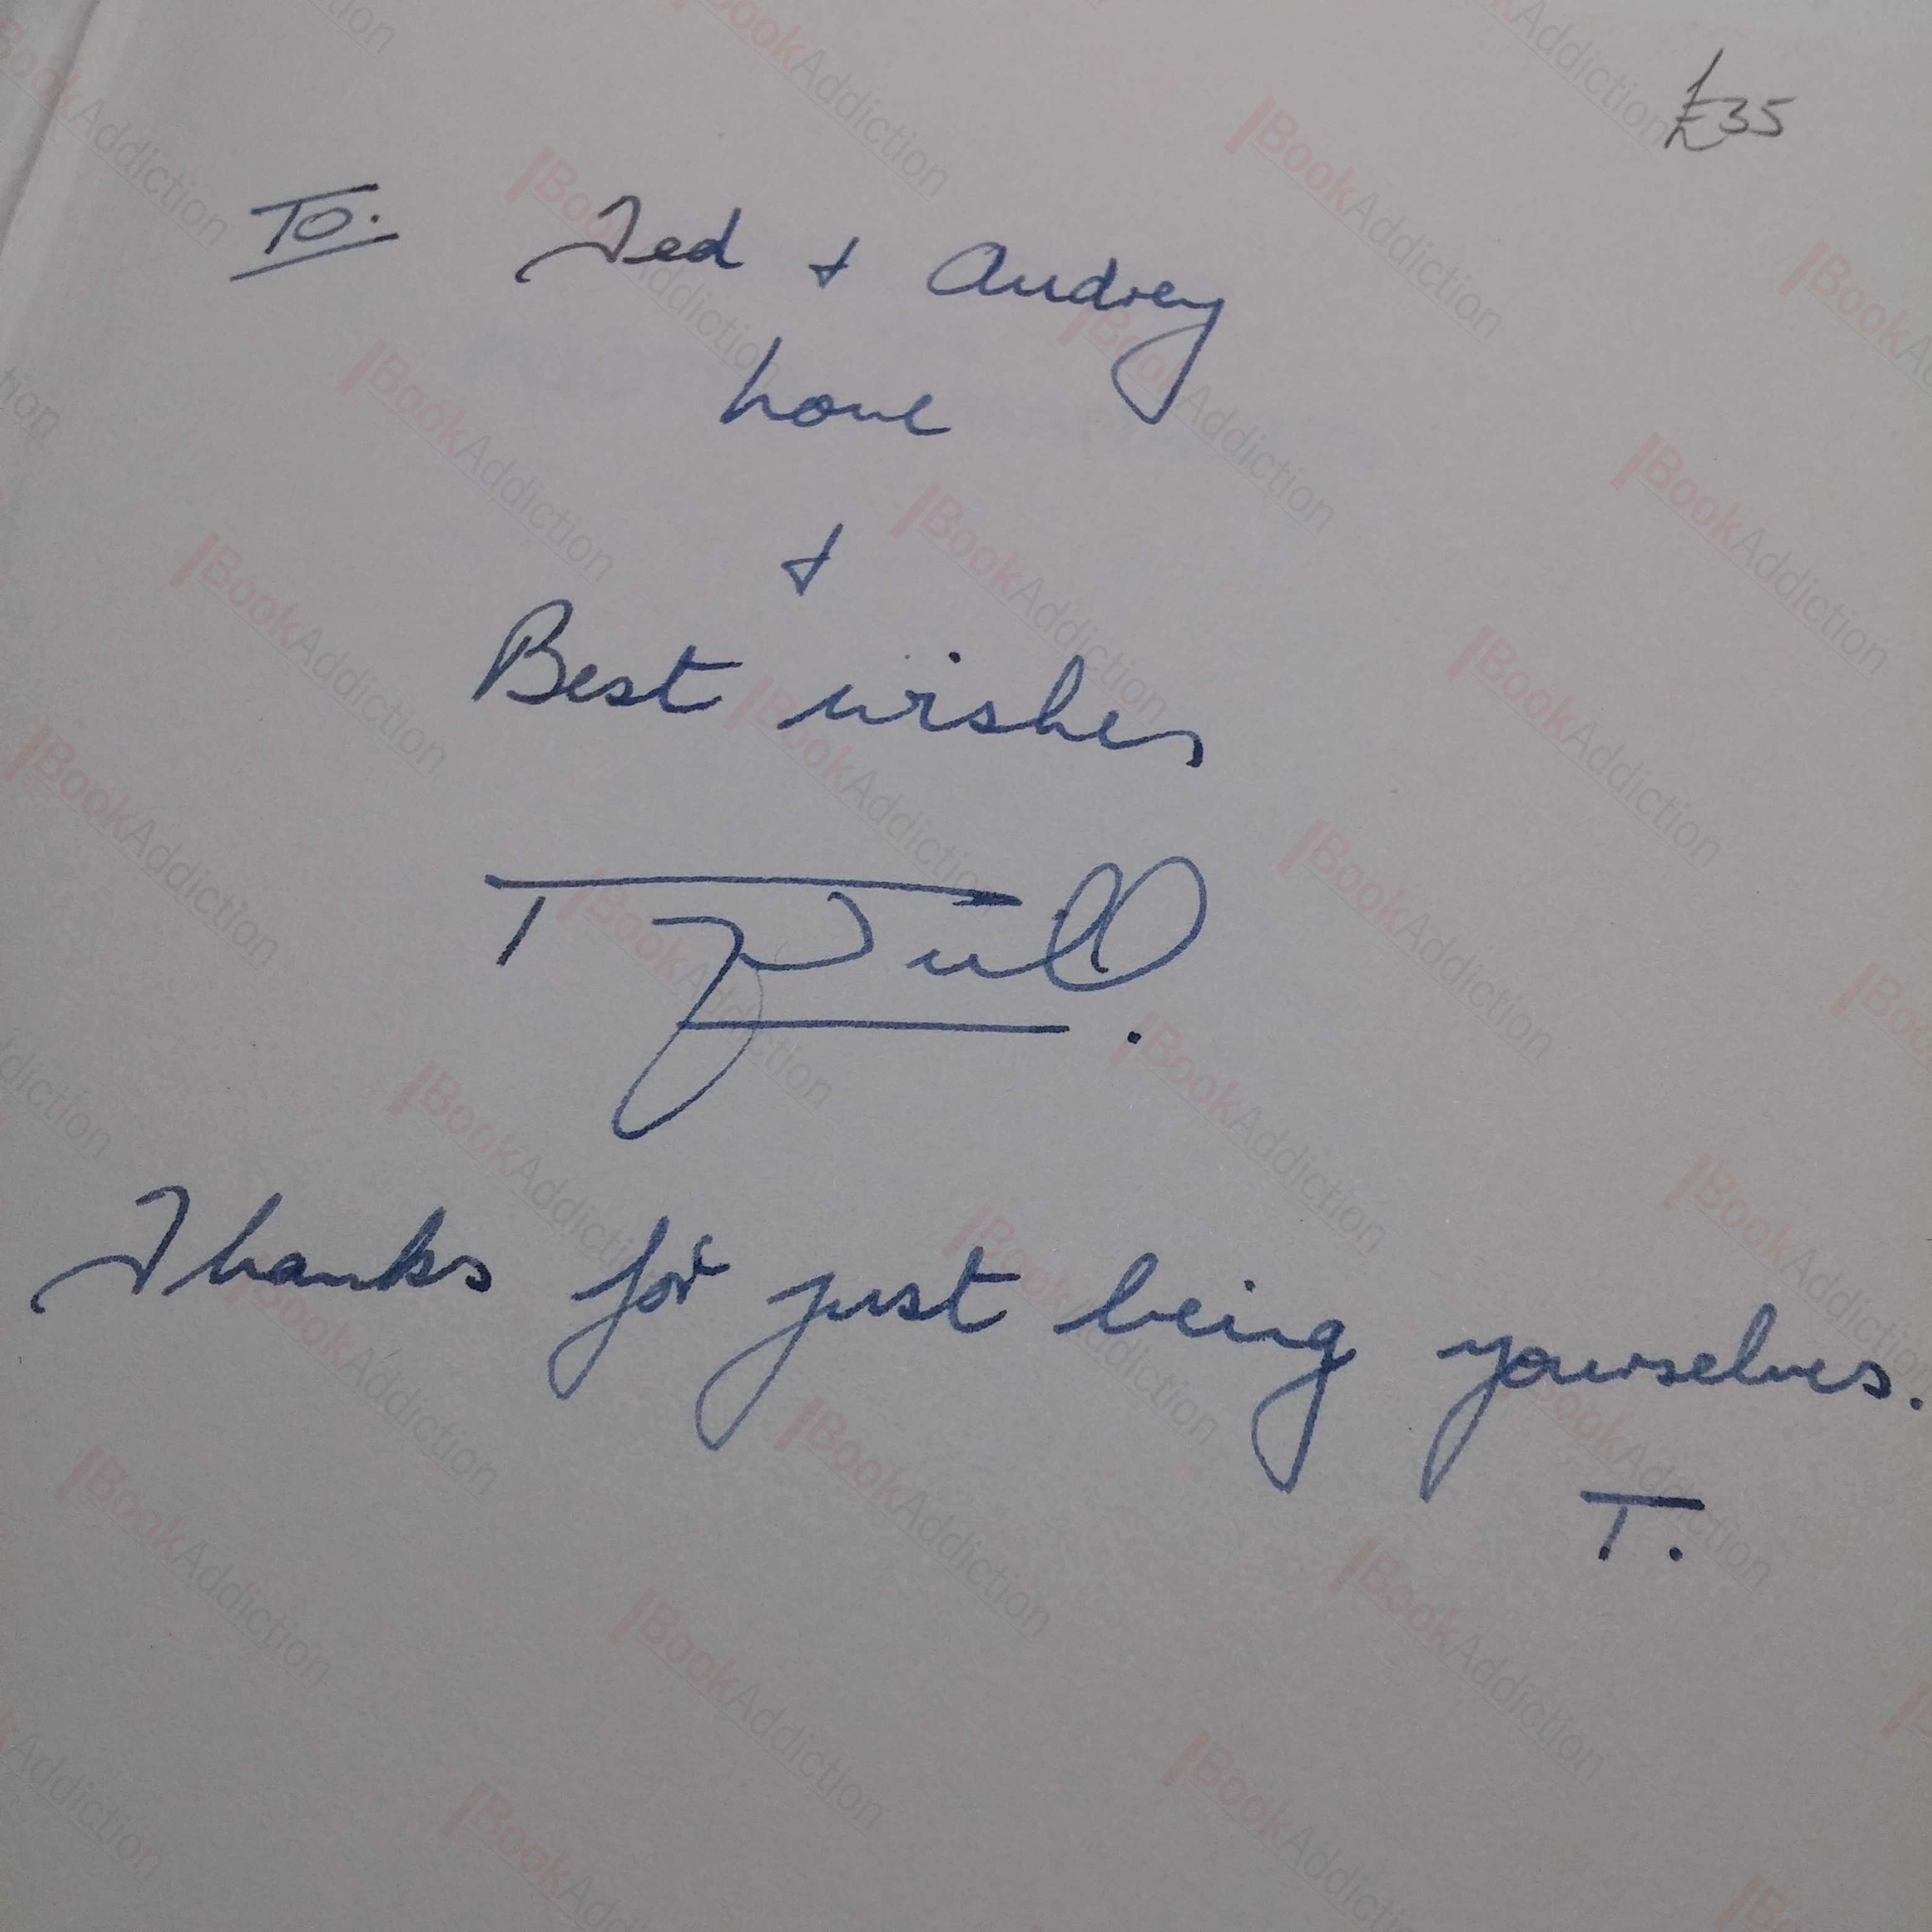 £35
To. Ted & Audrey
Love
&
Best wishes
Thanks for just being yourselves.
T.
BookAddiction